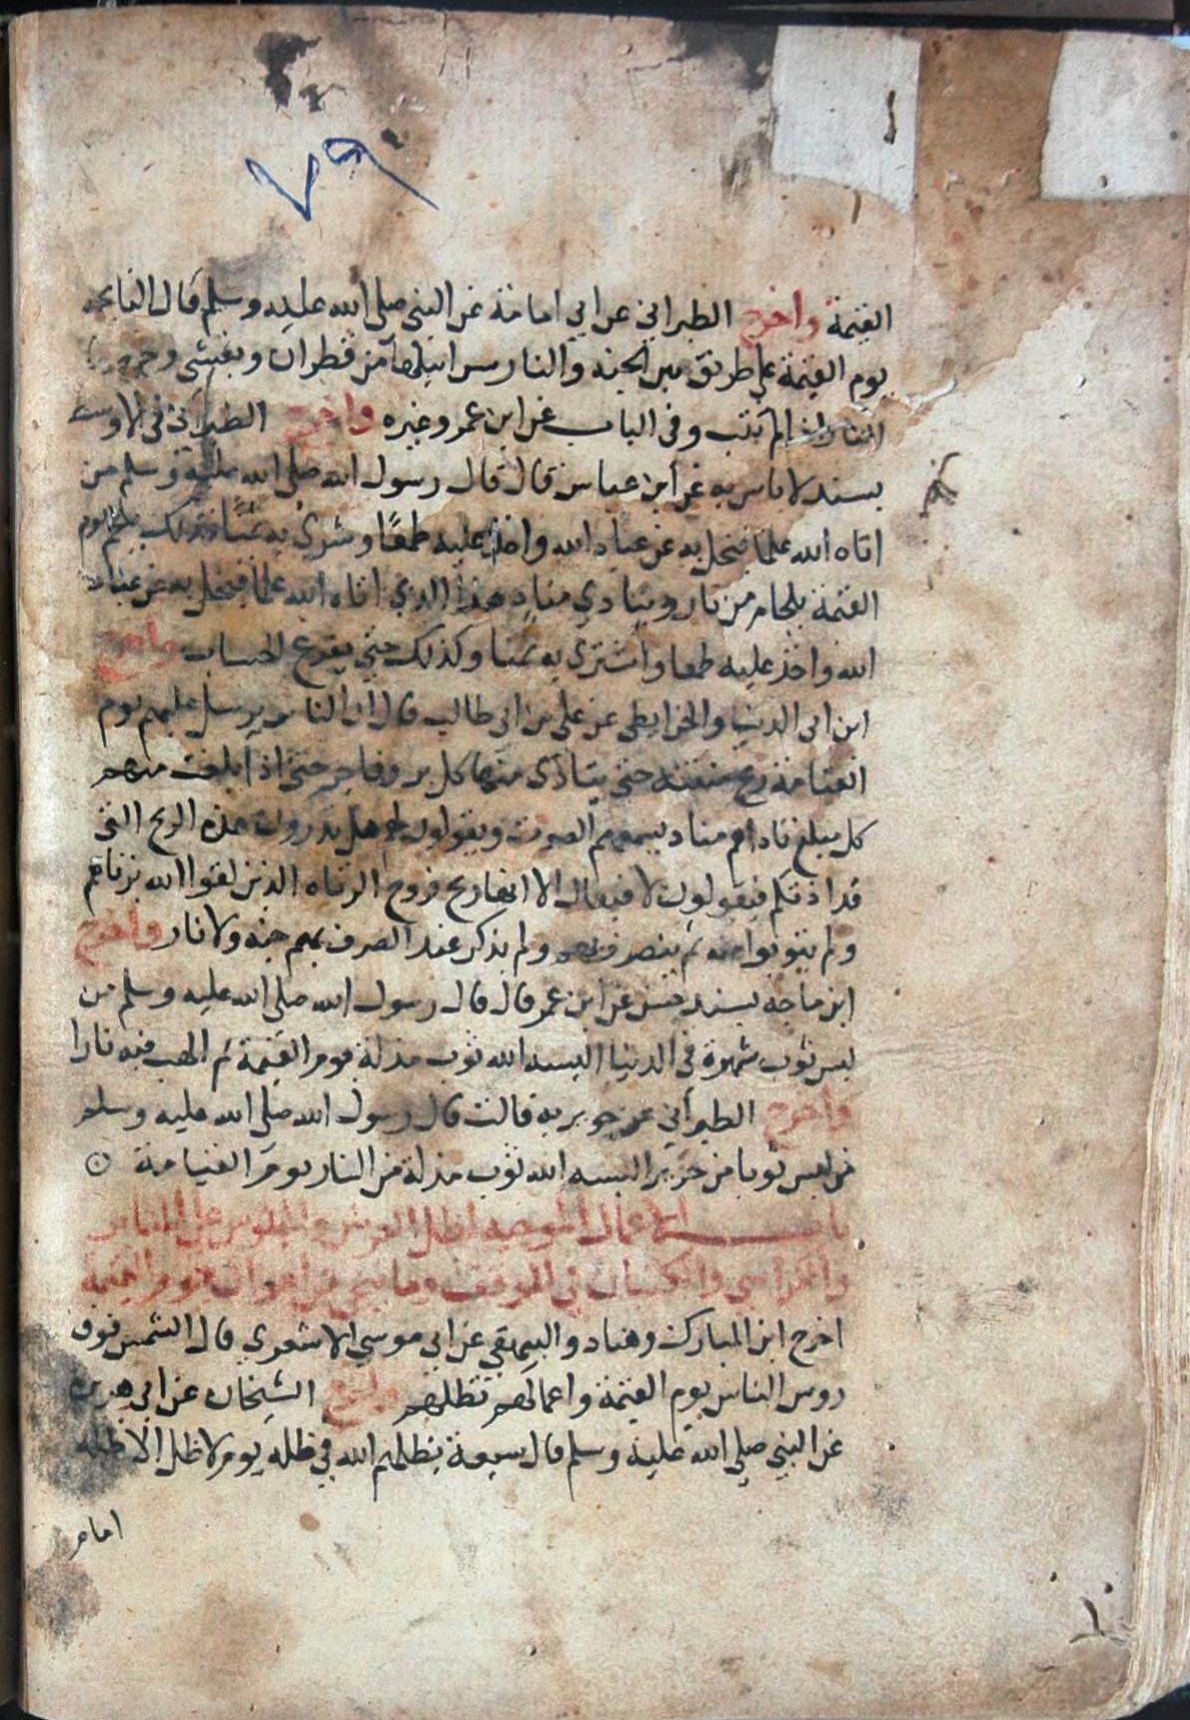 ٧٩
القيمة واخرج الطبراني عن ابي امامة عن النبي صلى الله عليه وسلم قال النايحه
يوم القيمة على طريق بين الجنه والنار سرابيلها من قطران ويغشى وجهها
النار ان لم تتب وفى الباب عن ابن عمر وغيره واخرج الطبراني في الاوسط
بسند لا باس به عن ابن عباس قال قال رسول الله صلى الله عليه وسلم من
اتاه الله علما فبخل به عن عباد الله واخذ عليه طمعًا وشرى به ثمنًا فذلك يلجم يوم
القيمة بلجام من نار وينادي مناد هذا الذي اتاه الله علما فبخل به عن عباد
الله واخذ عليه طمعا واشترى به ثمنا وكذلك حتى يفرغ الحساب واخرج
ابن ابى الدنيا والخرايطي عن علي بن ابى طالب قال ان الناس يرسل عليهم يوم
القيامة ريح منتنة حتى يتاذى منها كل بر وفاجر حتى اذا بلغت منهم
كل مبلغ ناداهم مناد يسمعهم الصوت ويقول لهم هل تدرون هذه الريح التى
قد اذتكم فيقولون لا فيقال الا انها ريح فروج الزناه الذين لقوا الله بزناهم
ولم يتوبوا منه ثم ينصرف بهم ولم يذكر عند الصرف بهم جنة ولا نار واخرج
ابن ماجه بسند حسن عن ابن عمر قال قال رسول الله صلى الله عليه وسلم من
لبس ثوب شهرة في الدنيا البسه الله ثوب مذلة يوم القيمة ثم الهب فيه نارا
واخرج الطبراني عن جويريه قالت قال رسول الله صلى الله عليه وسلم
من لبس ثوبا من حرير البسه الله ثوب مذلة من النار يوم القيامة
باب الاعمال الموجبه لظل العرش والجلوس على المنابر
والكراسي والكثبان في الموقف وما ينجي من اهوال يوم القيمة
اخرج ابن المبارك وهناد والبيهقي عن ابي موسى الاشعري قال الشمس فوق
روس الناس يوم القيمة واعمالهم تظلهم واخرج الشيخان عن ابي هريرة
عن النبي صلي الله عليه وسلم قال سبعة يظلهم الله في ظله يوم لا ظل الا ظله
امام